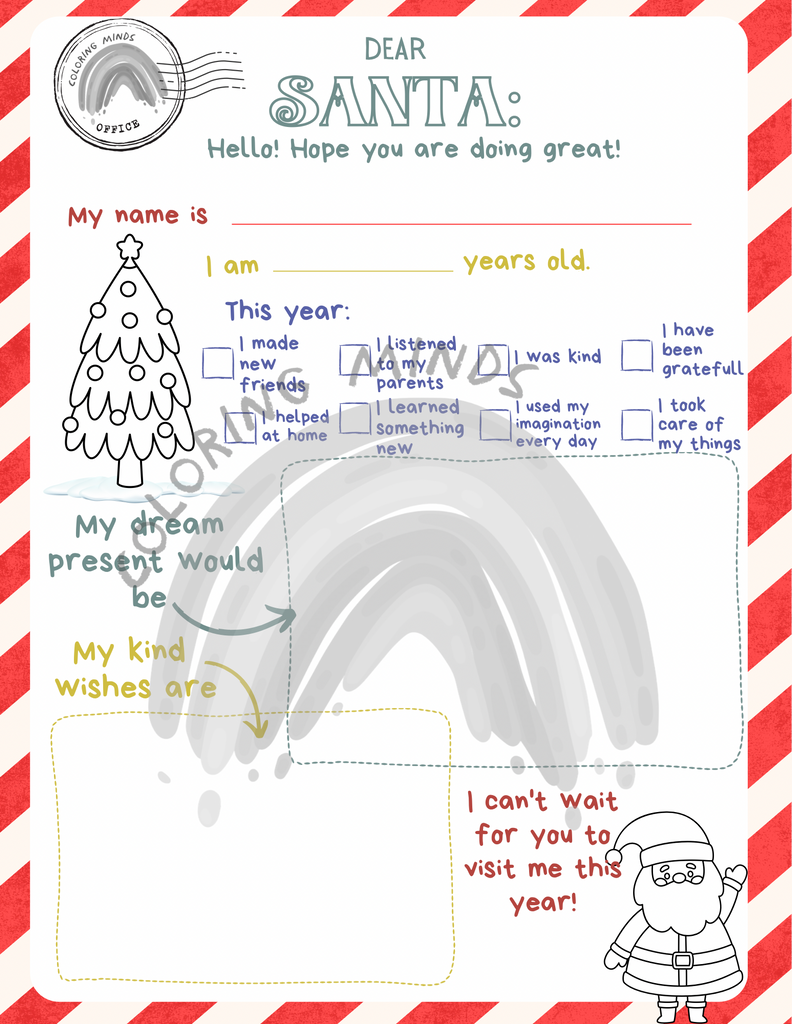 COLORING MINDS
OFFICE
DEAR
SANTA:
Hello! Hope you are doing great!
My name is
I am years old.
This year:
I made
new
friends
I listened
to my
parents
I was kind
I have
been
gratefull
I helped
at home
I learned
something
new
I used my
imagination
every day
I took
care of
my things
COLORING MINDS
My dream
present would
be
My kind
wishes are
I can't wait
for you to
visit me this
year!